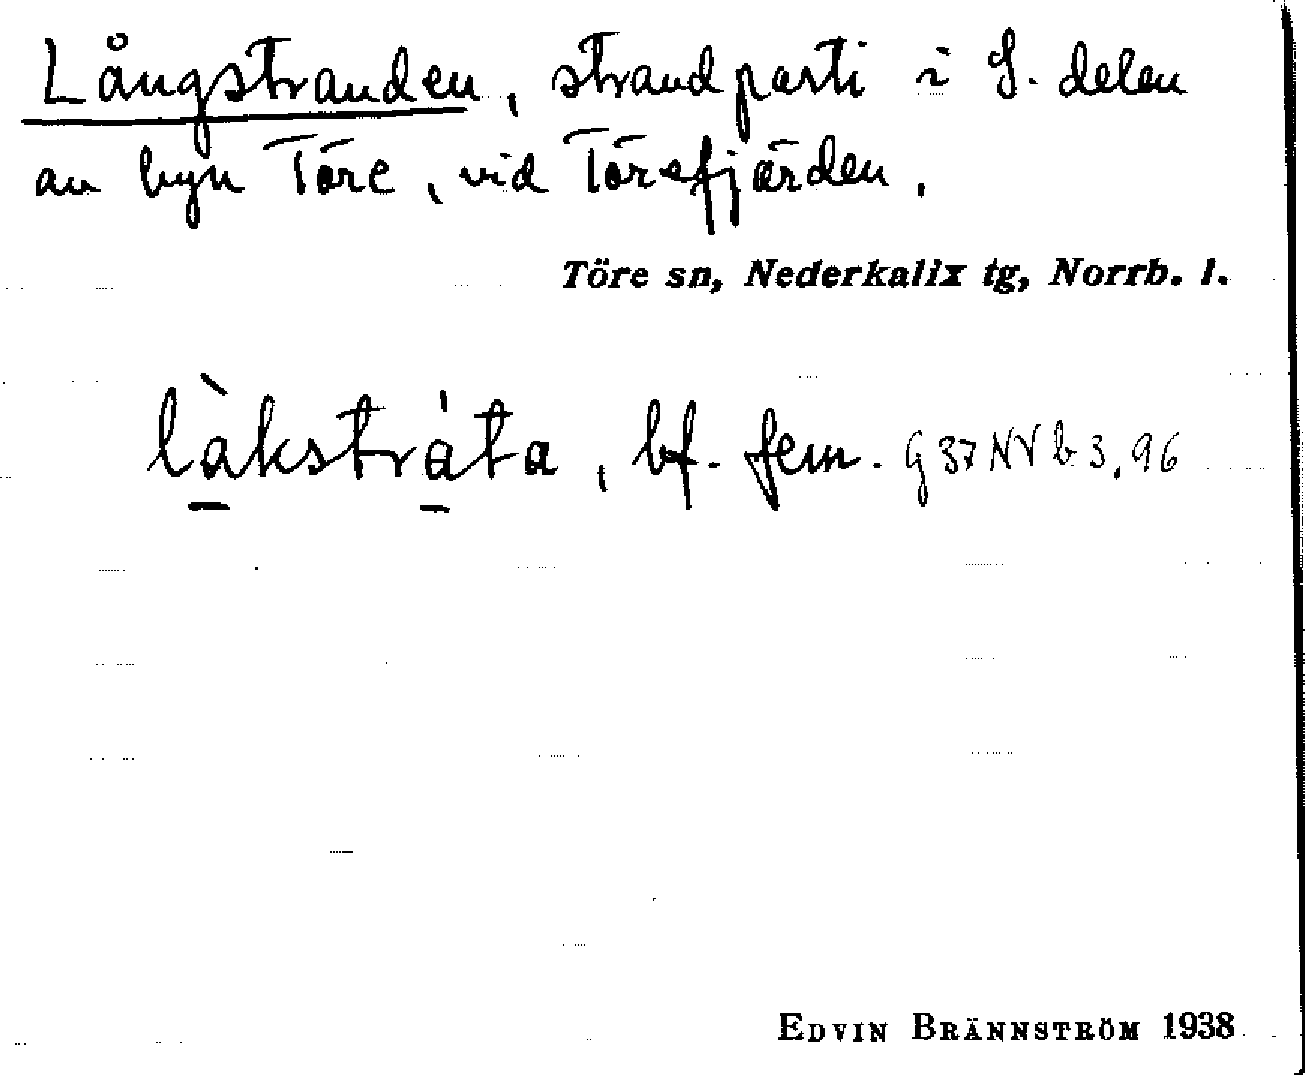 Långstranden, strandparti i S. delen
av byn Töre, vid Törefjärden.
Töre sn, Nederkalix tg, Norrb. l.
là̱kstrá̱ta, bf. fem. G 37 NV b 3, 96
EDVIN BRÄNNSTRÖM 1938